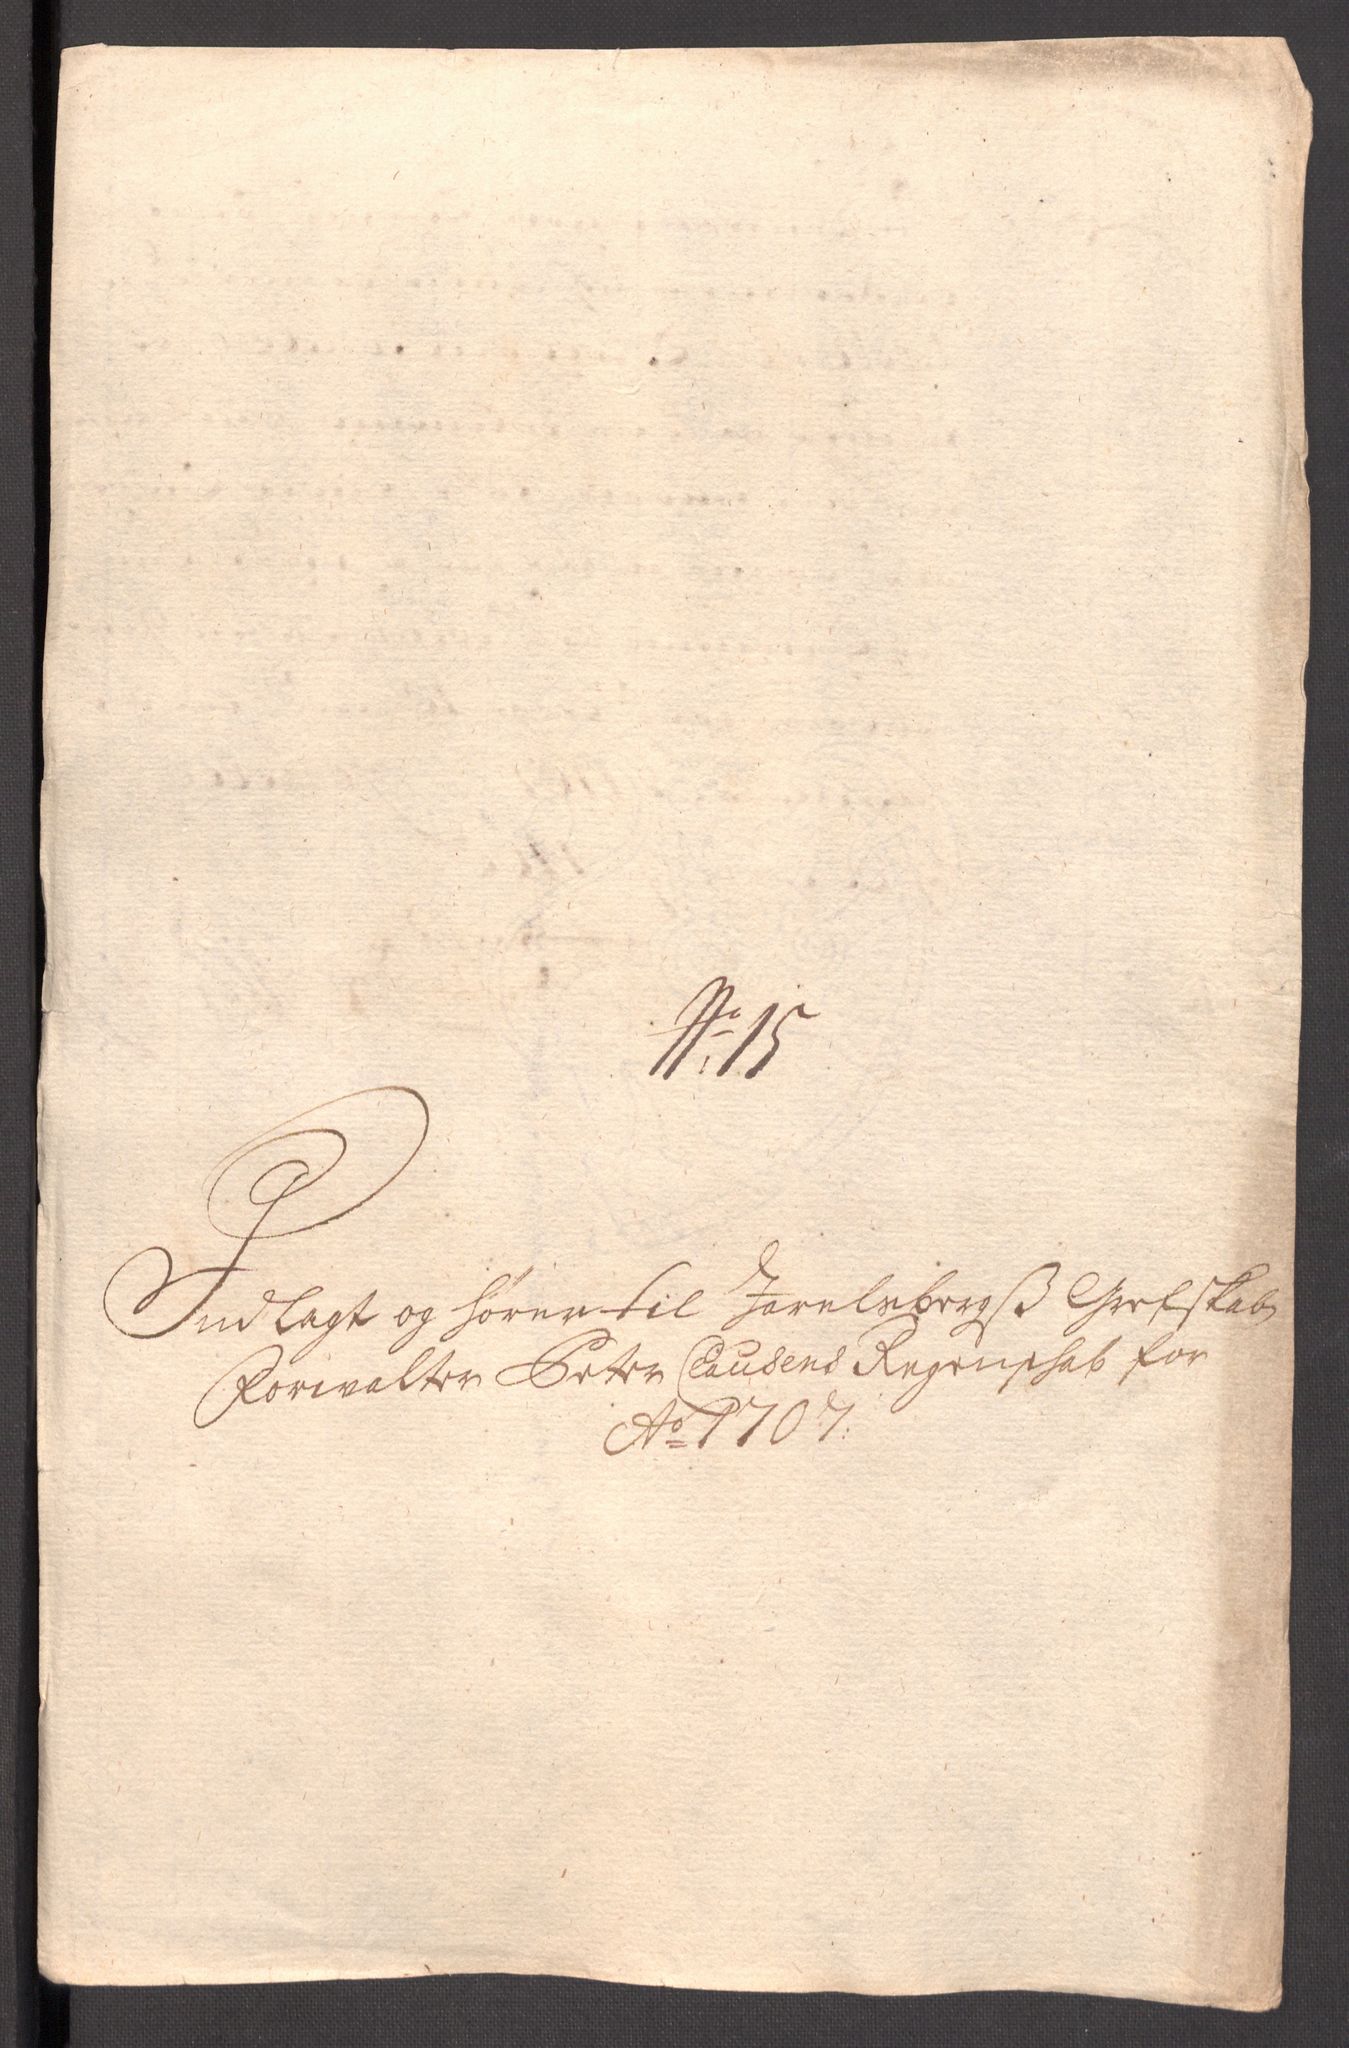 No. 15
Indlagt og hörer til Jarelsbergß Grefskabs
Forwalter Peter Clausens Regenschab for
Ao 1707.